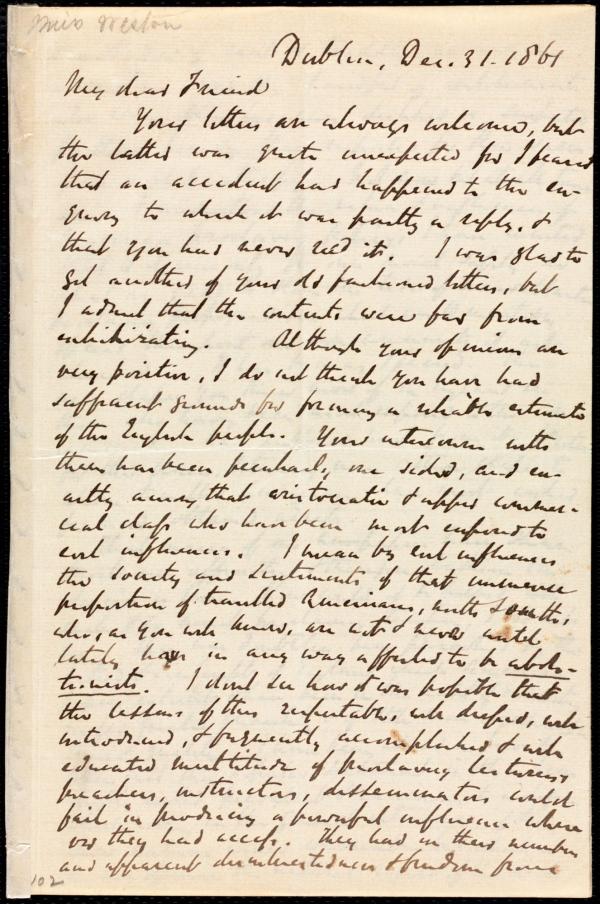 Miss Weston
Dublin, Dec. 31. 1861
My dear Friend
Your letters are always welcome, but
the latter was quite unexpected for I feared
that an accident had happened to the en-
quiry to which it was partly a reply, &
that you had never recd it. I was glad to
get another of your old fashioned letters, but
I admit that the contents were far from
exhilirating. Although your opinions are
very positive, I do not think you have had
sufficient grounds for forming a reliable estimate
of the English people. Your intercourse with
them has been peculiarly one sided, and en-
tirely among that aristocratic & upper commer-
cial class who have been most exposed to
evil influences. I mean by evil influences
the society and sentiments of that immense
proportion of travelled Americans, north & south,
who, as you well know, are not & never until
lately have in any way affected to be aboli-
tionists. I dont see how it was possible that
the lessons of this respectable, well dressed, well
introduced, & frequently accomplished & well
educated multitude of proslavery lecturers,
preachers, instructors, disseminators could
fail in producing a powerful influence where
ver they had access. They had in their numbers
and apparent disinterestedness & freedom from
102